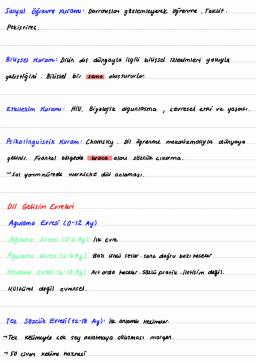 Sosyal Öğrenme Kuramı: Davranışlar gözlemleyerek öğrenme. Taklit.
Pekiştireç.
Bilişsel Kuram: Dilin dış dünyayla ilgili bilişsel izlenimleri yoluyla
geliştiğini. Bilişsel bir şema oluştururlar.
Etkileşim Kuramı: Hill. Biyolojik olgunlaşma, çevresel etki ve yaşantı.
Psikolinguistik Kuram: Chomsky. Dil öğrenme mekanizmasıyla dünyaya
gelinir. Frontal bölgede broca alanı sözcük çıkarma.
→ Sol yarımkürede wernicke dili anlaması.
Dil Gelişim Evreleri
Agulama Evresi (0-12 Ay)
İlk evre.
Bazı sesli sesler. sonra doğru bazı heceler
Art arda heceler. Sözcü pratik. iletişim değil.
Kültürel değil evrensel.
Tek Sözcük Evresi (12-18 Ay): İlk anlamlı kelimeler.
→ Tek kelimeyle çok şey anlatmaya çalışması morgan.
→ 50 civarı kelime haznesi